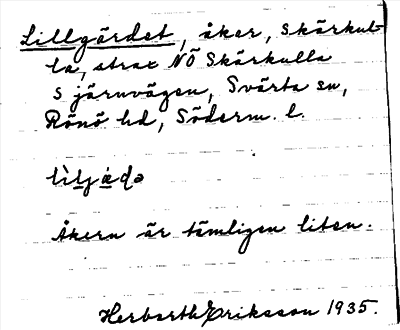 Lillgärdet, åker, Skärkul-
la, strax NÖ Skärkulla
S järnvägen, Svärta sn,
Rönö hd, Söderm. l.
Åkern är tämligen liten.
Herbarth Eriksson 1935.